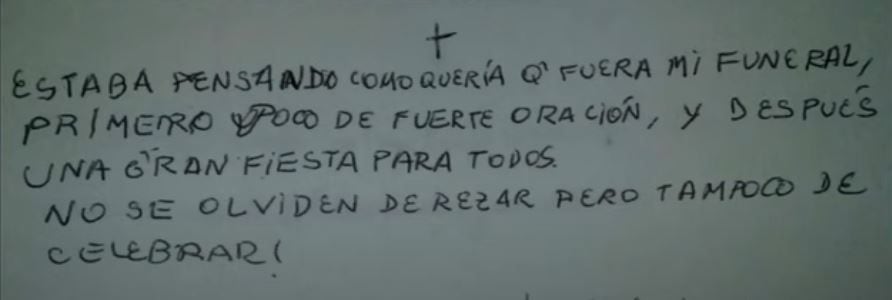 +
ESTABA PENSANDO COMO QUERÍA Q' FUERA MI FUNERAL,
PRIMERO POCO DE FUERTE ORACIÓN, Y DESPUÉS
UNA GRAN FIESTA PARA TODOS.
NO SE OLVIDEN DE REZAR PERO TAMPOCO DE
CELEBRAR!